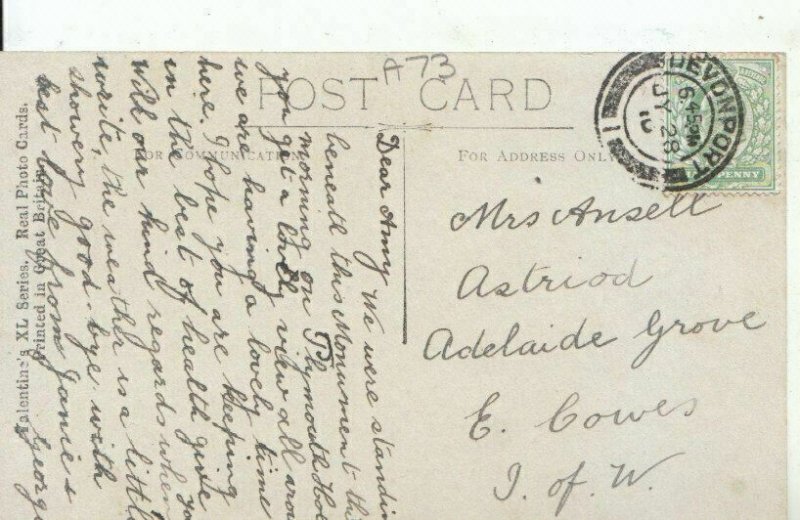 A73
POST CARD
FOR COMMUNICATION
FOR ADDRESS ONLY
DEVONPORT
6.45PM
JY 28
10
1
PENNY
Mrs Ansell
Astriod
Adelaide Grove
E. Cowes
I. of W.
Dear Amy We were standin
beneath this Monument thi
morning on Plymouth Ho
you get a lovly view all arou
we are having a lovely time
here. I hope you are keeping
in the best of health give
will our kind regards when yo
write, the weather is a little
showery good-bye with
best love from Janie &
George
Valentine's XL Series. Real Photo Cards.
Printed in Great Britain.